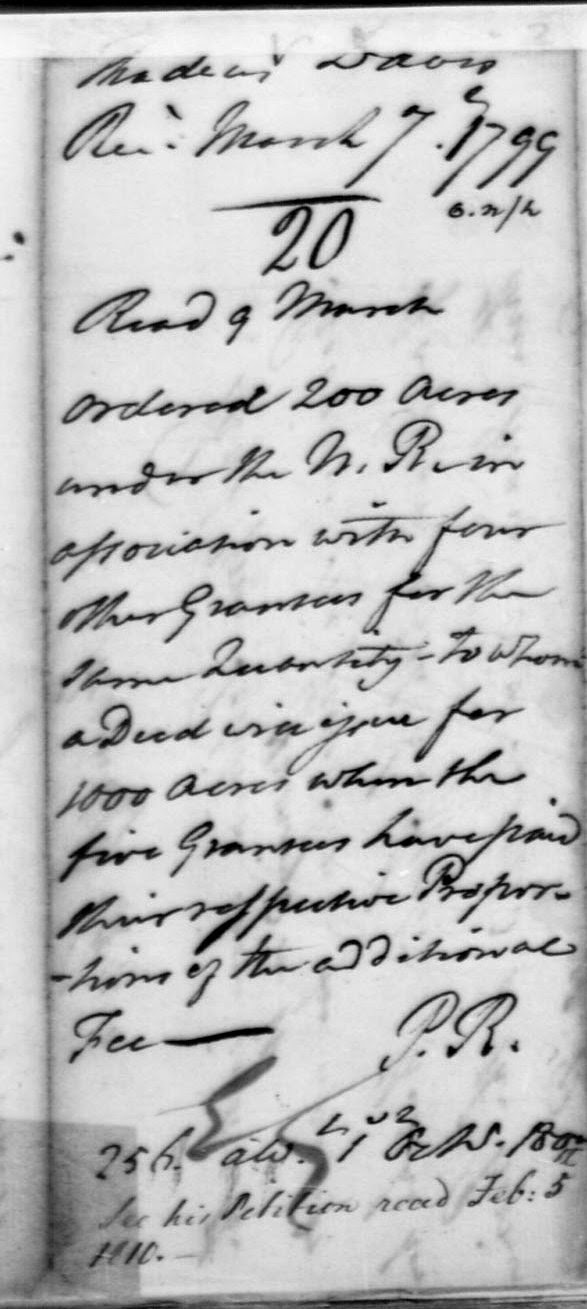 Thadeus Davis
Rec.d March 7. 1799
20
Read 9 March
Ordered 200 Acres
under the N. R. in
association with four
other Grantees for the
same Quantity - to whom
a Deed will issue for
1000 Acres when the
five Grantees have paid
their respective Propor-
-tions of the additional
Fee
P. R.
See his Petition read Feb: 5
1810.